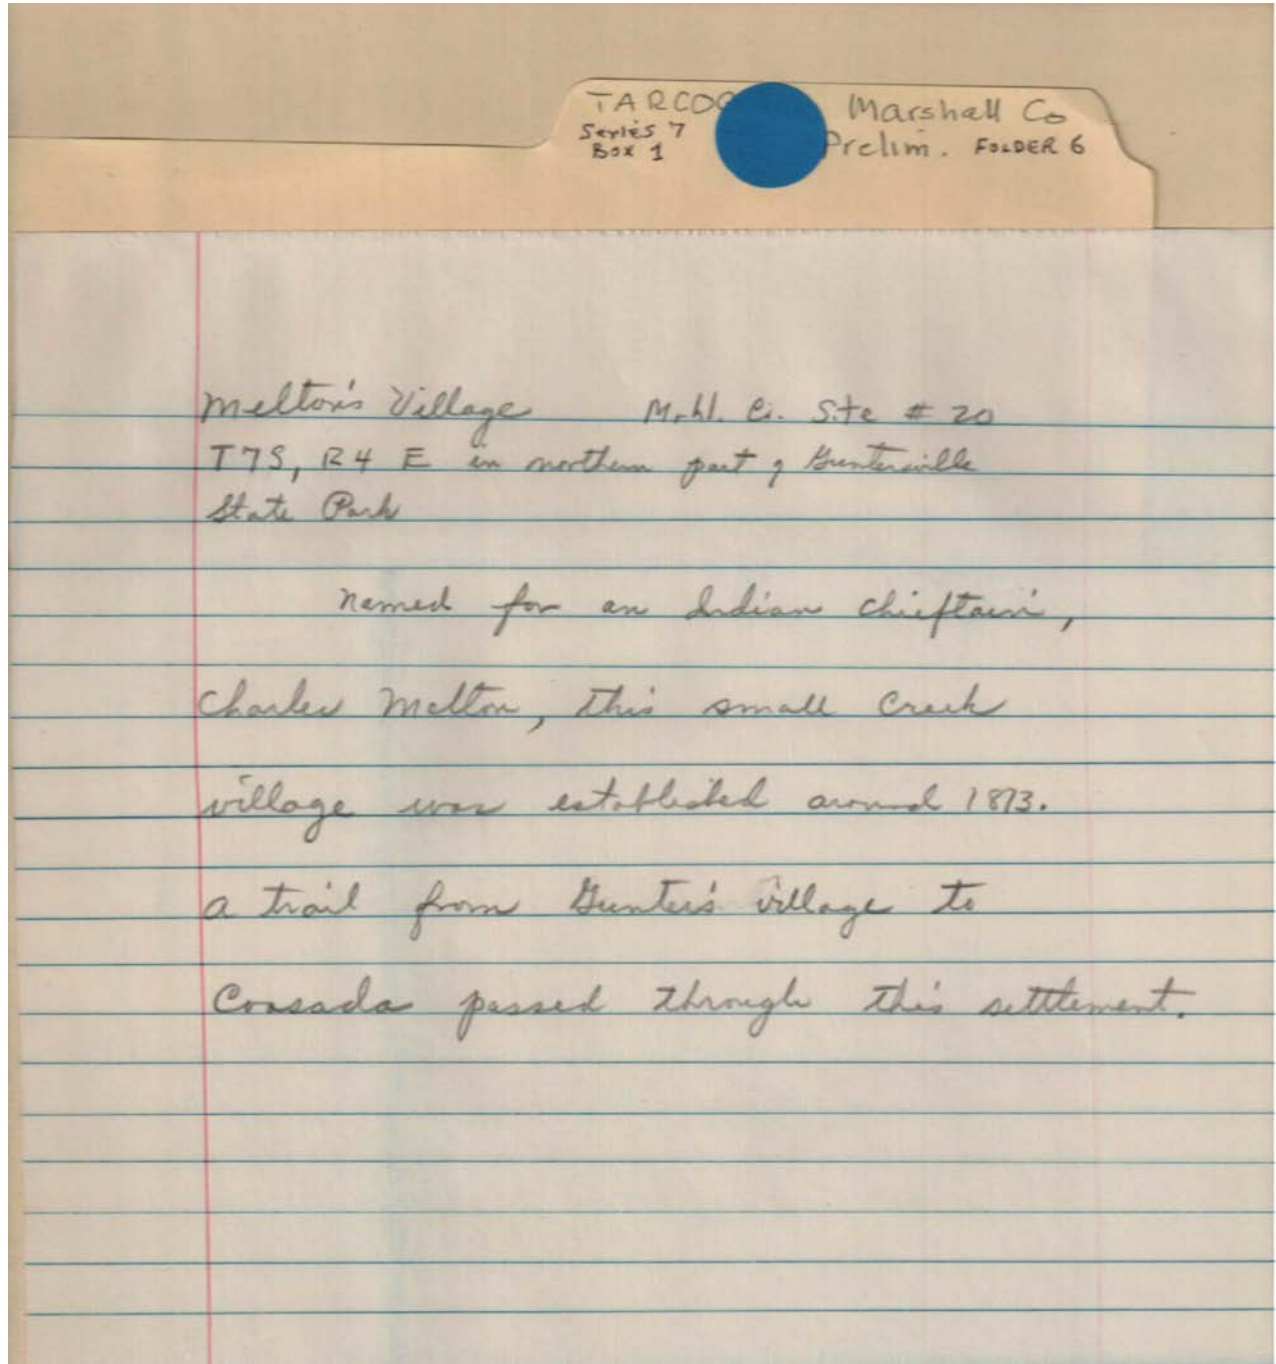 TARCOG Marshall Co
Series 7 Prelim. FOLDER 6
Box 1
Melton's Village Mrhl. Co. Site # 20
T7S, R4 E in northern part of Guntersville
State Park
Named for an Indian chieftain,
Charles Melton, this small Creek
village was established around 1813.
A trail from Gunter's village to
Coosada passed through this settlement.